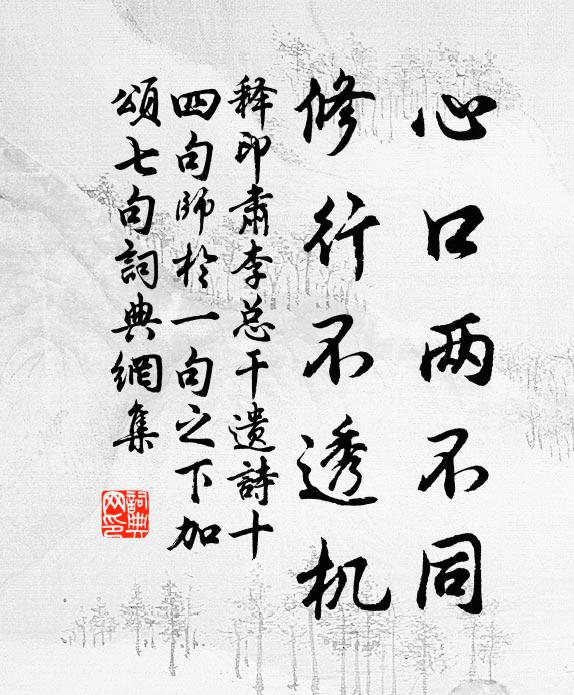 心口两不同
修行不透机
释印肃李总干遗詩十
四句师於一句之下加
頌七句詞典網集
詞典网印